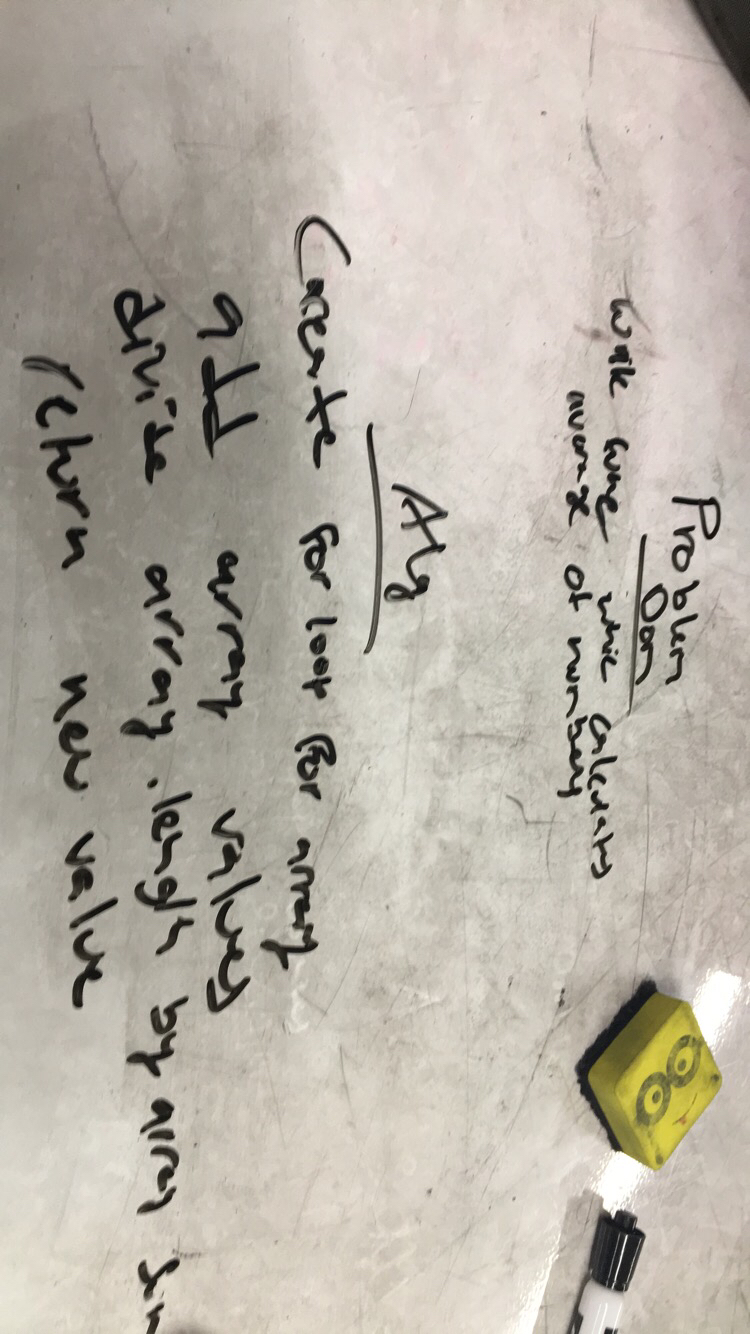 Problem
Dom
which calculates
average of numbers
Alg
Create for loop for array
add array values
divide array.length by array
return new value